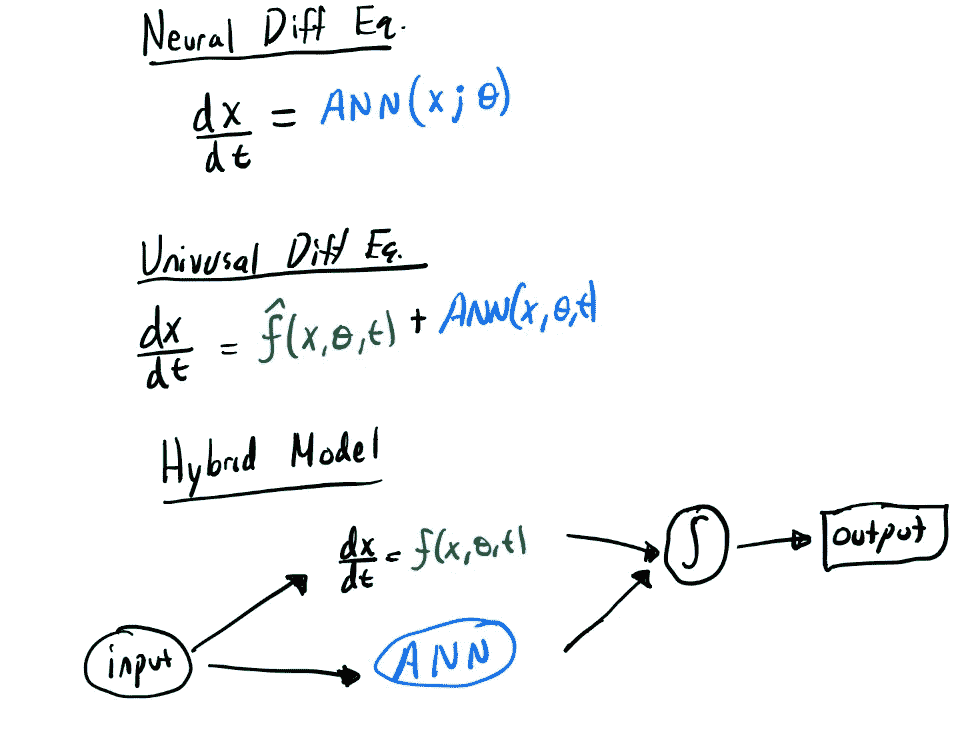 Neural Diff Eq.
dx/dt = ANN(x; θ)
Univusal Diff Eq.
dx/dt = f̂(x,θ,t) + ANN(x,θ,t)
Hybrid Model
dx/dt = f(x,θ,t)
∫
output
input
ANN